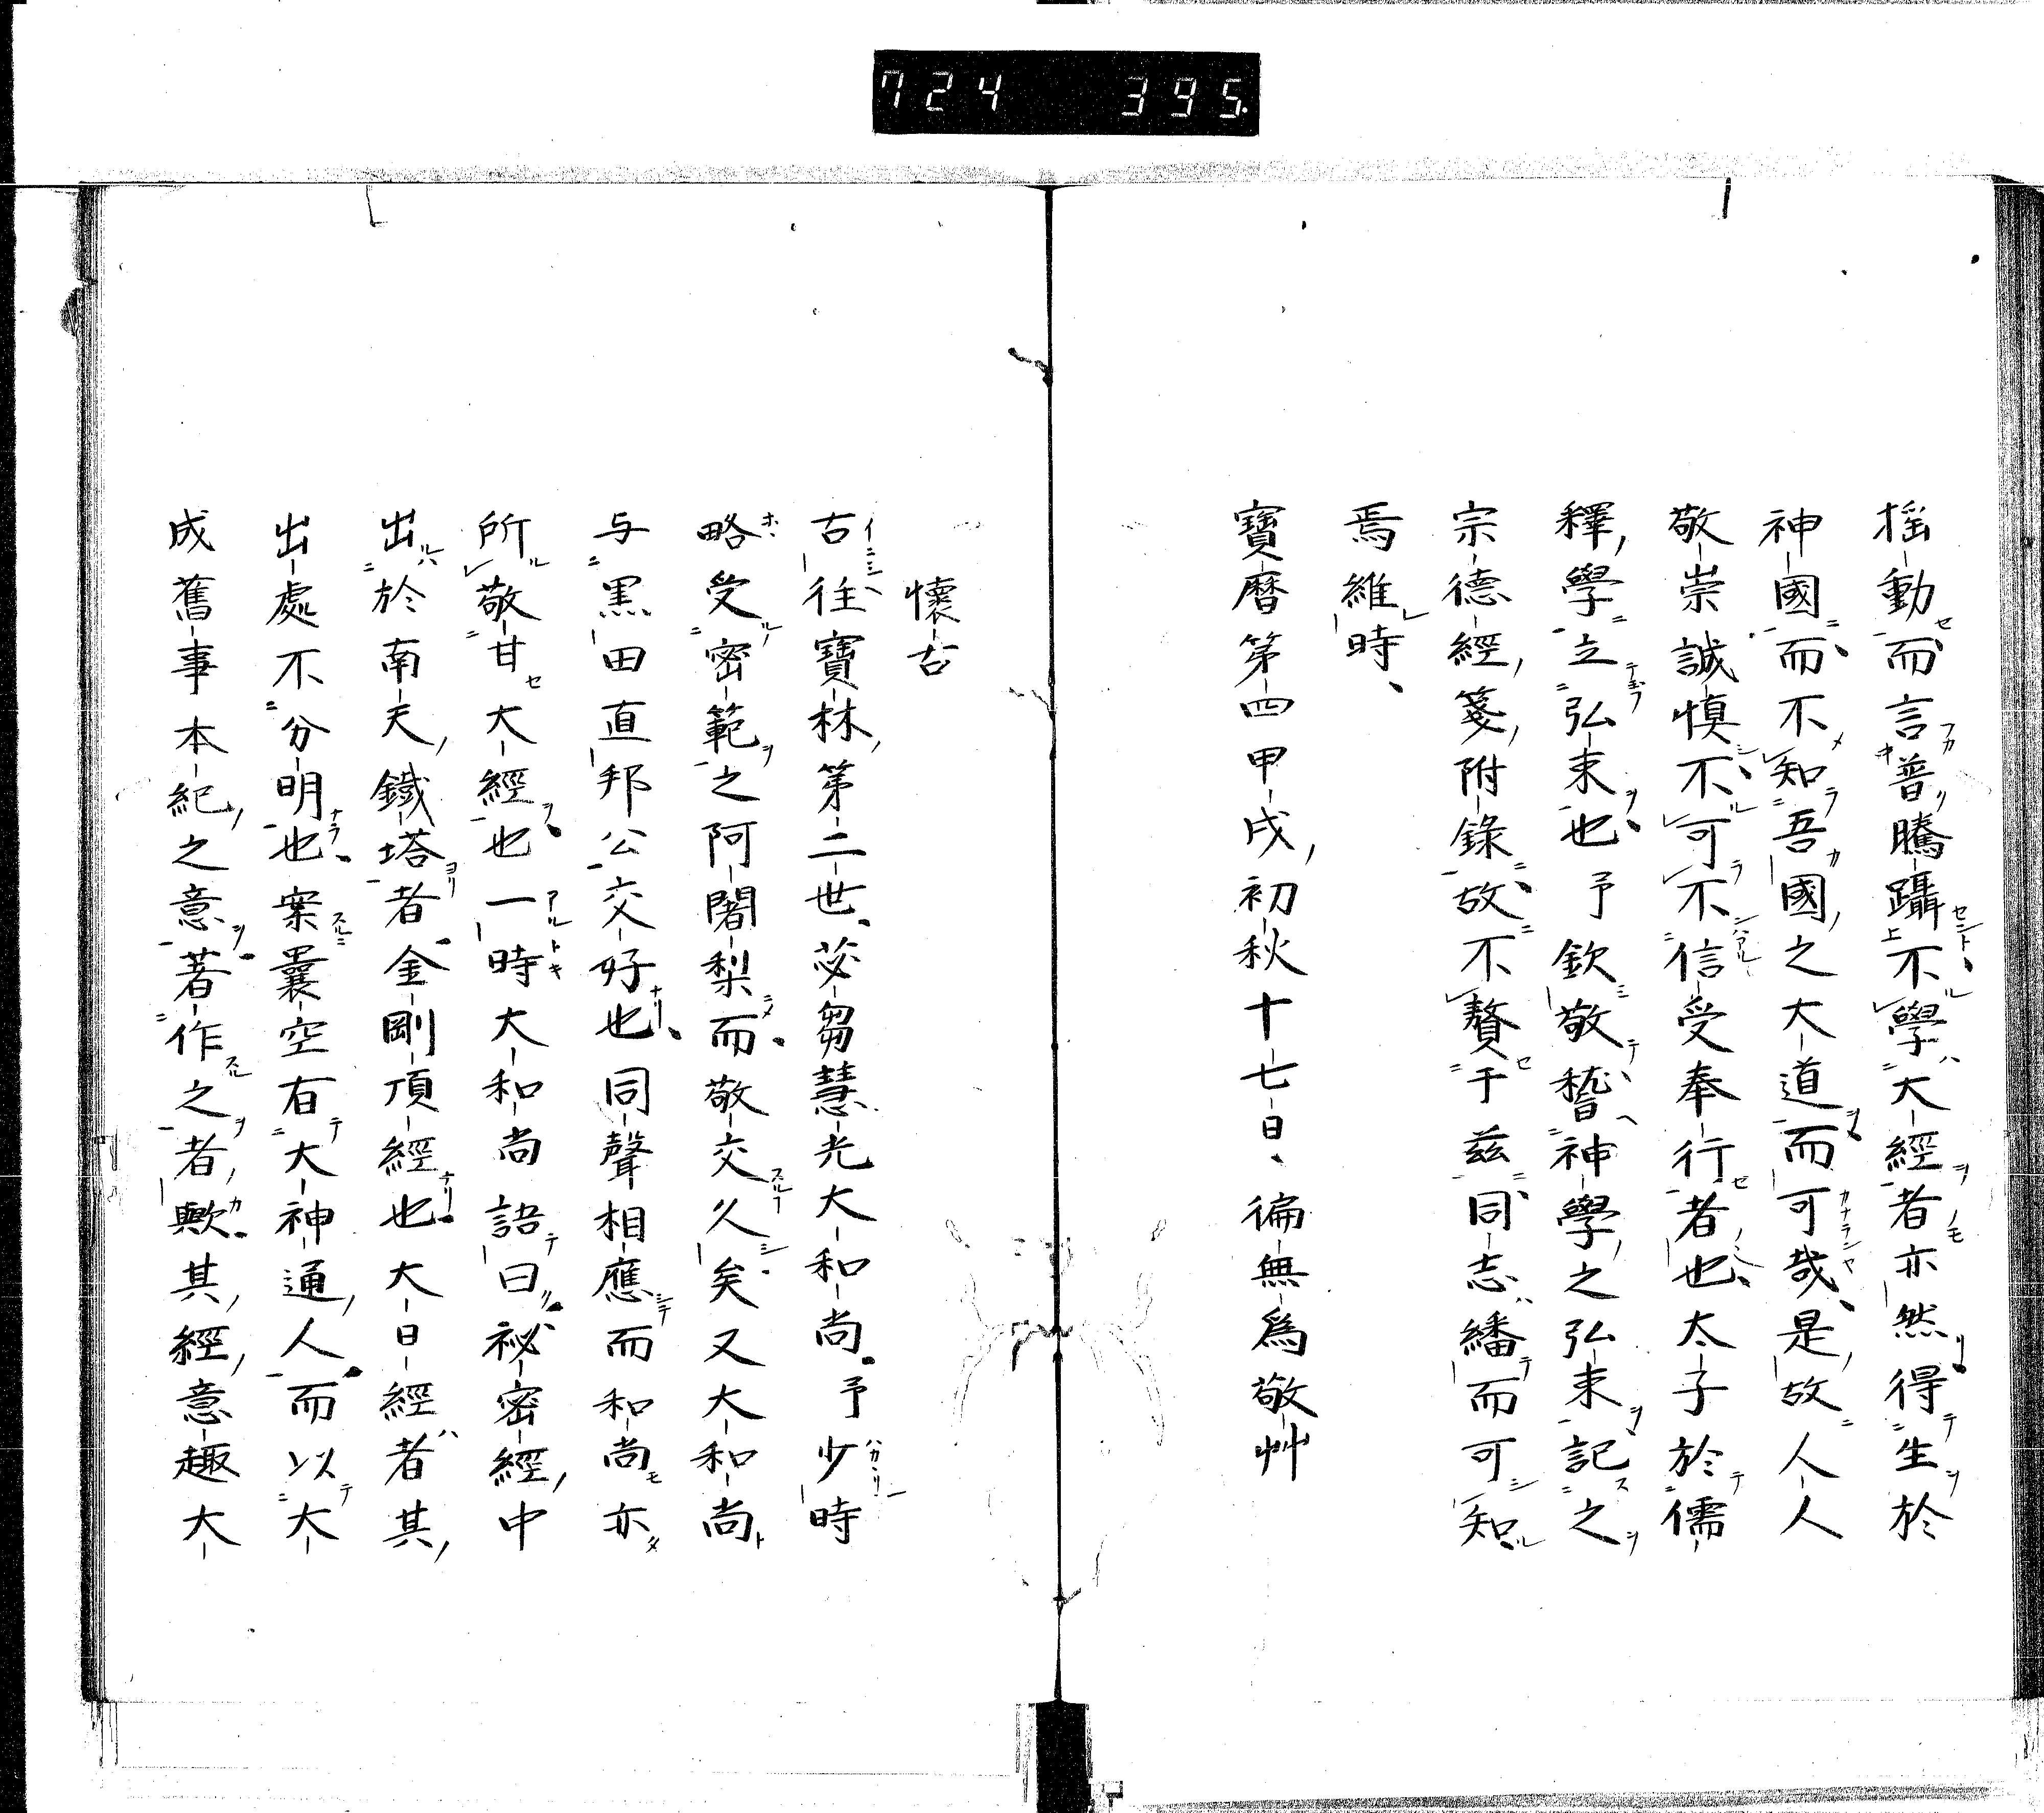 724 395
揺動而言普騰躡不學大經者亦然得生於
神國而不知吾國之大道而可哉是故人人
敬崇誠慎不可不信受奉行者也太子於儒
釋學立弘束也予欽敬稽神學之弘束記之
宗德經箋附錄故不贅于茲同志繙而可知
焉維時
寶曆第四甲戌初秋十七日徧無爲敬艸
懷古
古往寶林第二世苾芻慧光大和尚予少時
略受密範之阿闍梨而敬交久矣又大和尚
与黒田直邦公交好也同聲相應而和尚亦
所敬甘大經也一時大和尚語曰祕密經中
出於南天鐵塔者金剛頂經也大日經者其
出處不分明也案曩空有大神通人而以大
成舊事本紀之意著作之者歟其經意趣大